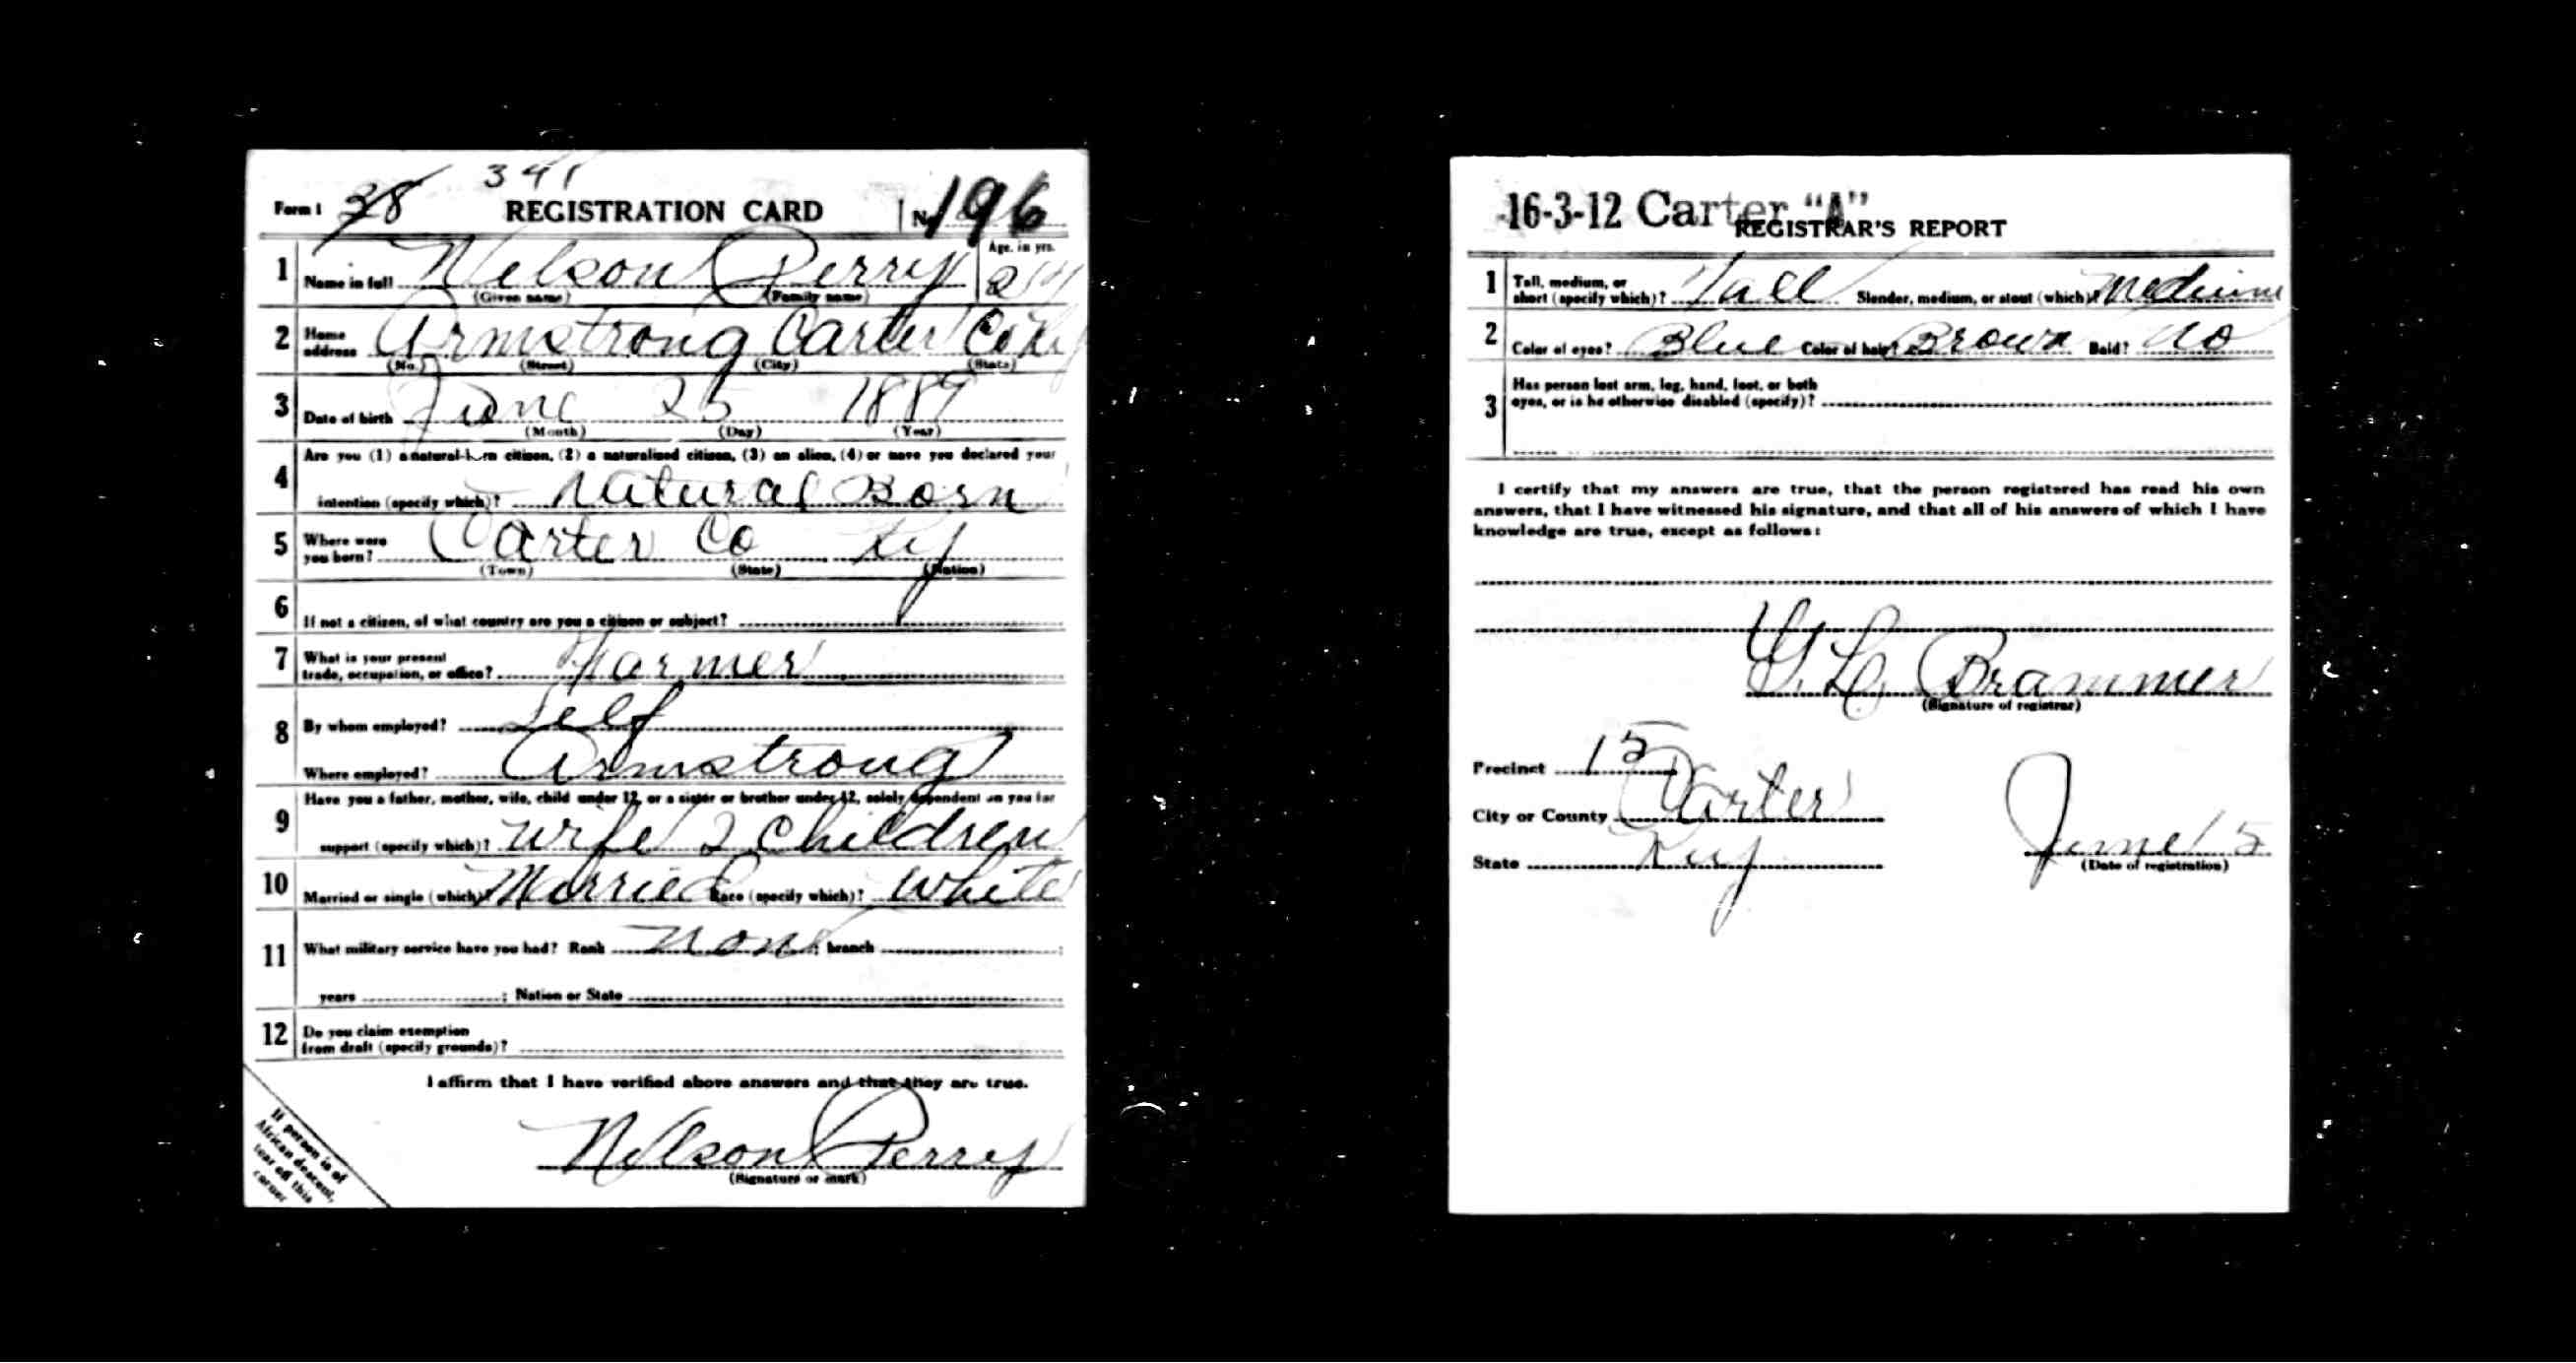 341
Form 1 38 REGISTRATION CARD No. 196
1 Name in full Nelson Perry Age, in yrs.
(Given name) (Family name)
2 Home address Armstrong Carter Co Ky
(No.) (Street) (City) (State)
3 Date of birth June 25 1889
(Month) (Day) (Year)
4 Are you (1) a natural-born citizen, (2) a naturalized citizen, (3) an alien, (4) or have you declared your
intention (specify which)? Natural Born
5 Where were
you born? Carter Co Ky
(Town) (State) (Nation)
6 If not a citizen, of what country are you a citizen or subject?
7 What is your present
trade, occupation, or office? Farmer
8 By whom employed? Self
Where employed? Armstrong
9 Have you a father, mother, wife, child under 12, or a sister or brother under 12, solely dependent on you for
support (specify which)? wife 2 children
10 Married or single (which)? Married Race (specify which)? White
11 What military service have you had? Rank non ; branch ;
years ; Nation or State
12 Do you claim exemption
from draft (specify grounds)?
I affirm that I have verified above answers and that they are true.
Nelson Perry
(Signature or mark)
If person is of
African descent,
tear off this
corner
16-3-12 Carter "A"
REGISTRAR'S REPORT
1 Tall, medium, or
short (specify which)? Tall Slender, medium, or stout (which)? Medium
2 Color of eyes? Blue Color of hair? Brown Bald? No
3 Has person lost arm, leg, hand, foot, or both
eyes, or is he otherwise disabled (specify)?
I certify that my answers are true, that the person registered has read his own
answers, that I have witnessed his signature, and that all of his answers of which I have
knowledge are true, except as follows:
G. L. Brammer
(Signature of registrar)
Precinct 15
City or County Carter
State Ky
June 15
(Date of registration)